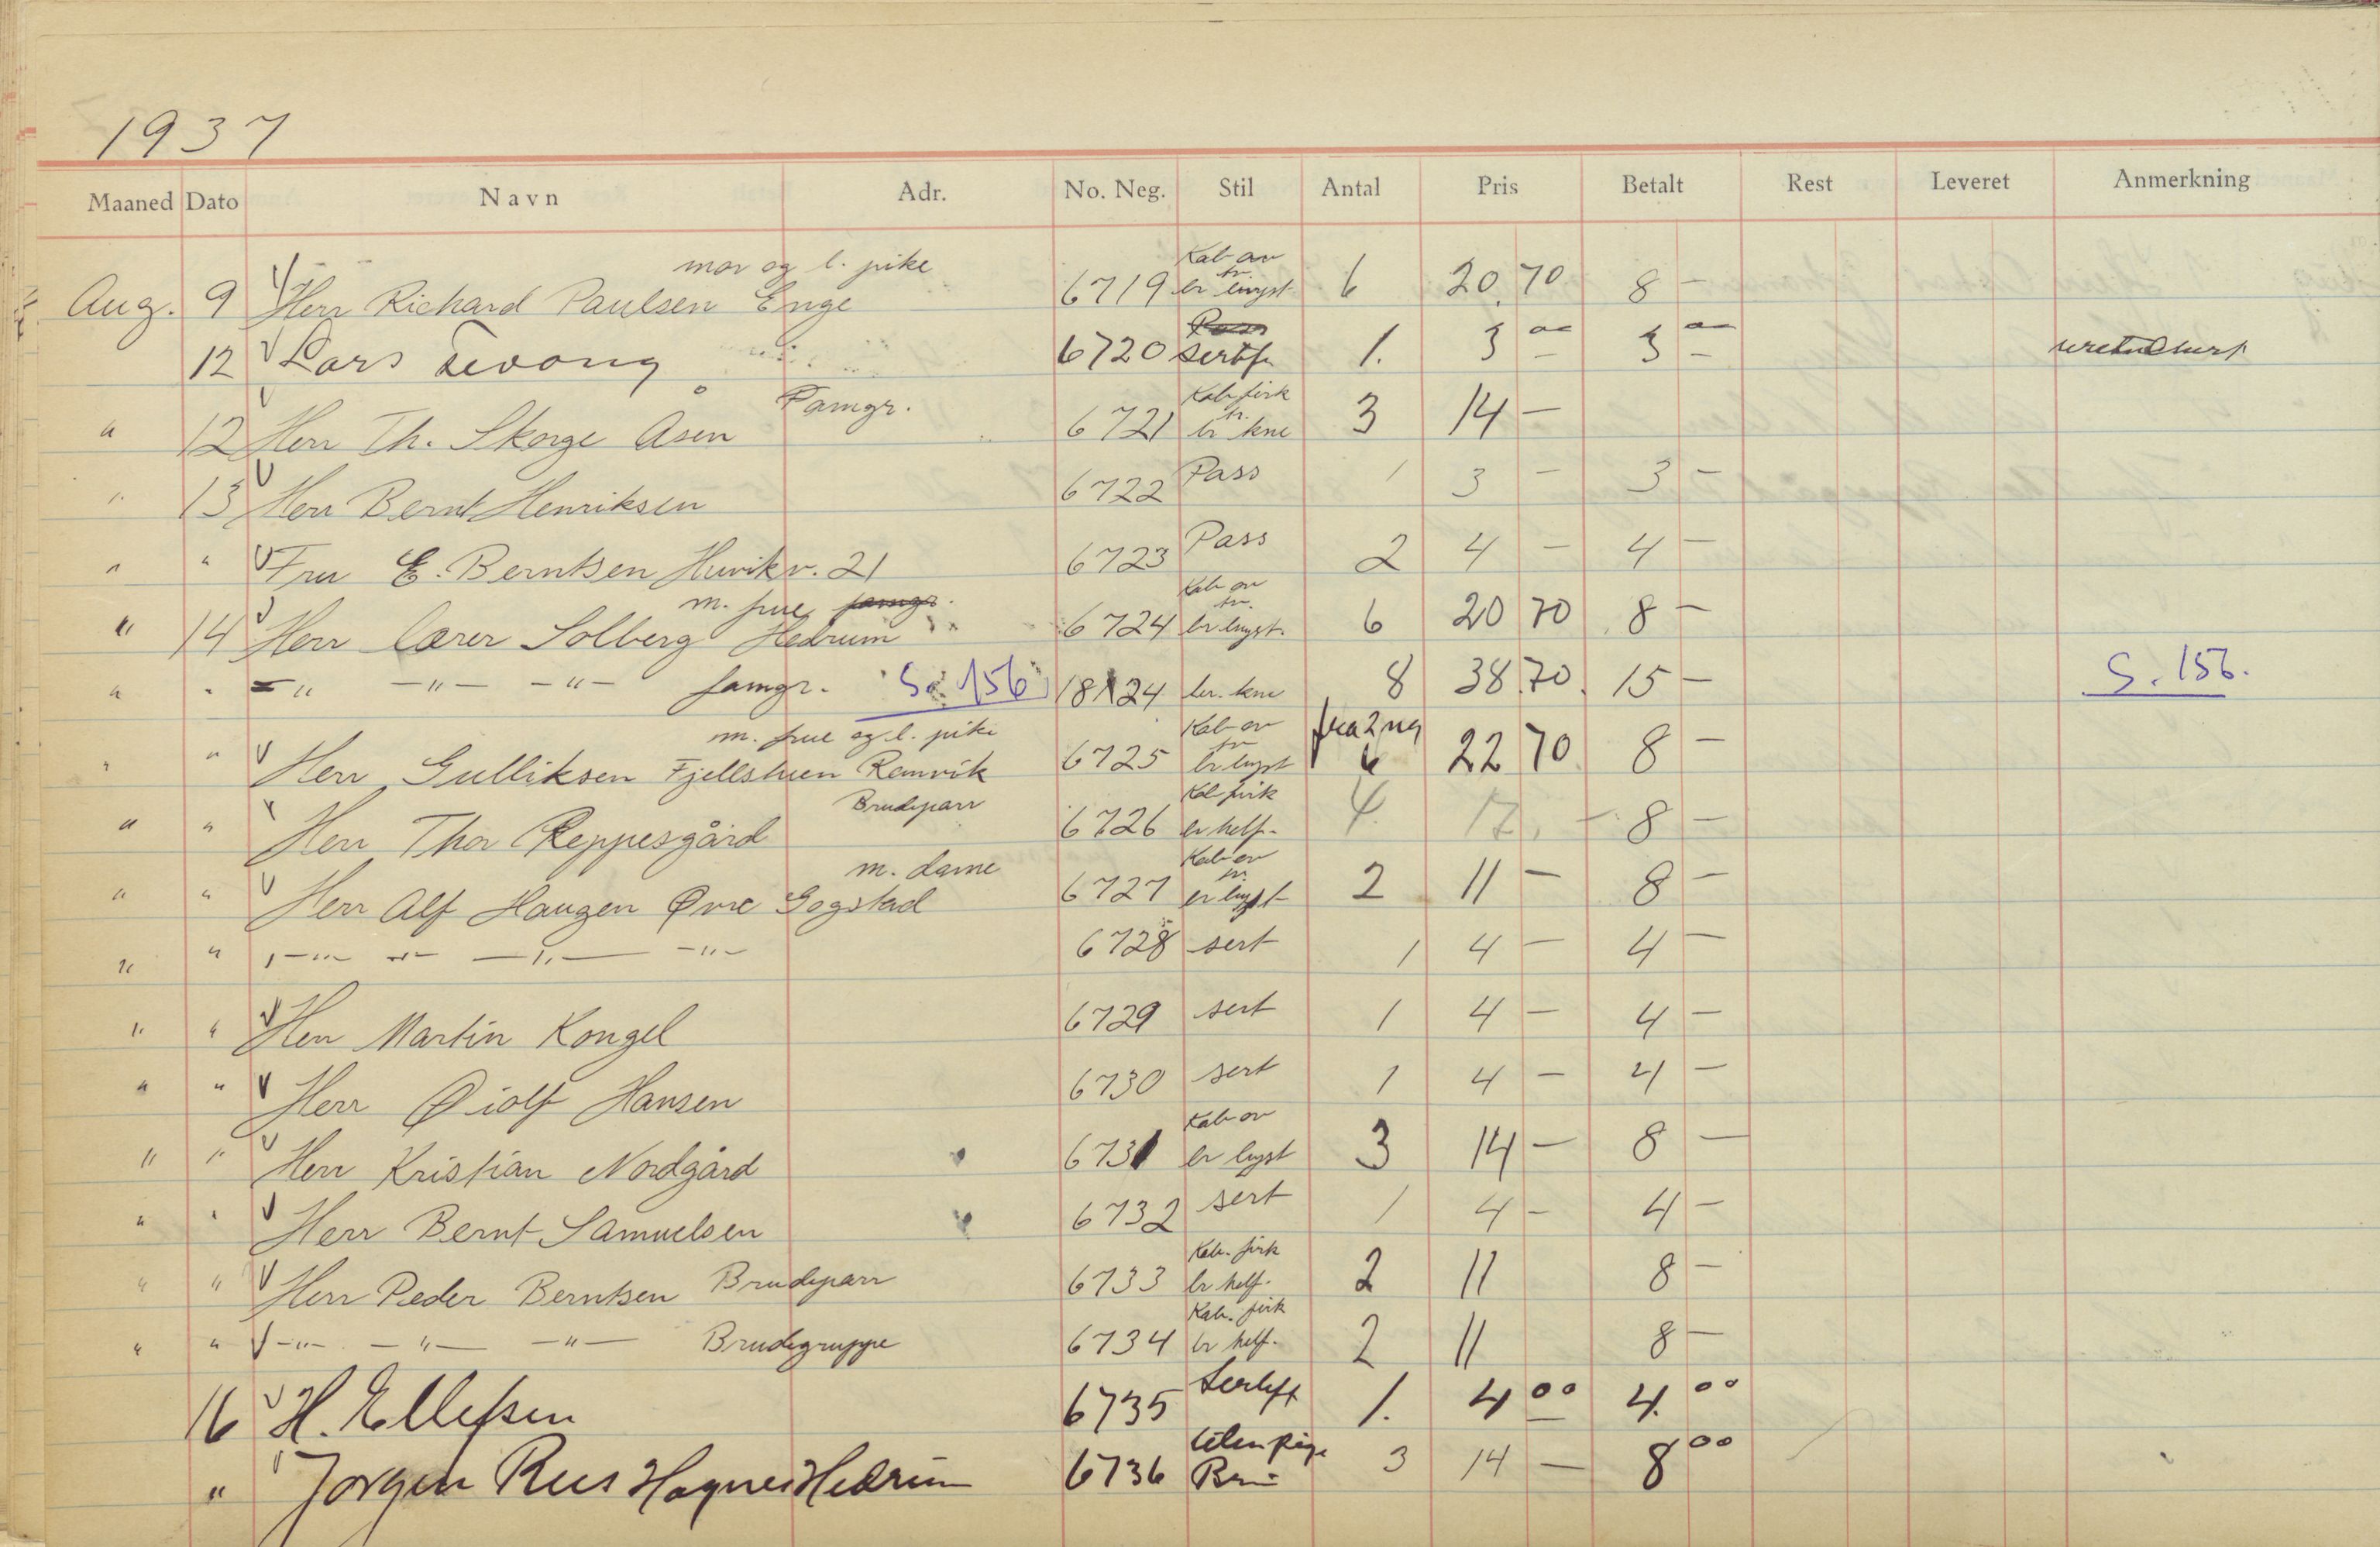 1937
Maaned Dato Navn Adr. No. Neg. Stil Antal Pris Betalt Rest Leveret Anmerkning
mor og l. pike Kab ov
Aug. 9 Herr Richard Paulsen Enge 6719 br lyst 6 20,70 8 -
Pass
12 Lars 6720 Sertf 1. 3 00 3 00
Famgr. Kab firk
" 12 Herr Th. Skorge Åsen 6721 br kne 3 14 -
" 13 Herr Bernt Henriksen 6722 Pass 1 3 - 3 -
" " Fru E. Berntsen Huvikv. 21 6723 Pass 2 4 - 4 -
m. frue famgr. Kab ov
" 14 Herr lærer Solberg Hedrum 6724 br lyst. 6 20 70 8 -
" " -"- -"- -"- famgr. S. 156 18124 br. kne 8 38,70. 15 - S. 156.
m. frue og l. pike Kab ov fra 2 neg
" " Herr Gulliksen Fjellstuen Ramvik 6725 br lyst 6 22 70 8 -
Brudeparr Kab firk
" " Herr Thor Reppesgård 6726 br helf. 4 17. - 8 -
m. dame Kab ov
" " Herr Alf Haugen Øvre Gogstad 6727 br lyst 2 11 - 8 -
" " -"- -"- -"- -"- 6728 sert 1 4 - 4 -
" " Herr Martin Kongel 6729 sert 1 4 - 4 -
" " Herr Øiolf Hansen 6730 sert 1 4 - 4 -
Kab ov
" " Herr Kristian Nordgård 6731 br lyst 3 14 - 8 -
" " Herr Bernt Samuelsen 6732 sert 1 4 - 4 -
Kab. firk
" " Herr Peder Berntsen Brudeparr 6733 br helf. 2 11 8 -
Kab. firk
" " -"- -"- -"- Brudegruppe 6734 br helf. 2 11 8 -
16 H. Ellefsen 6735 Sertift 1. 4 00 4. 00
" Jorgen Rus Hedrum 6736 3 14 - 8 00